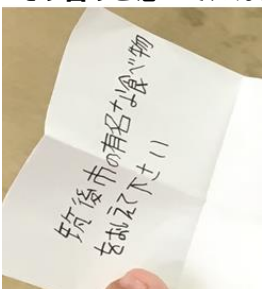 筑後市の有名な食べ物
をおしえて下さい